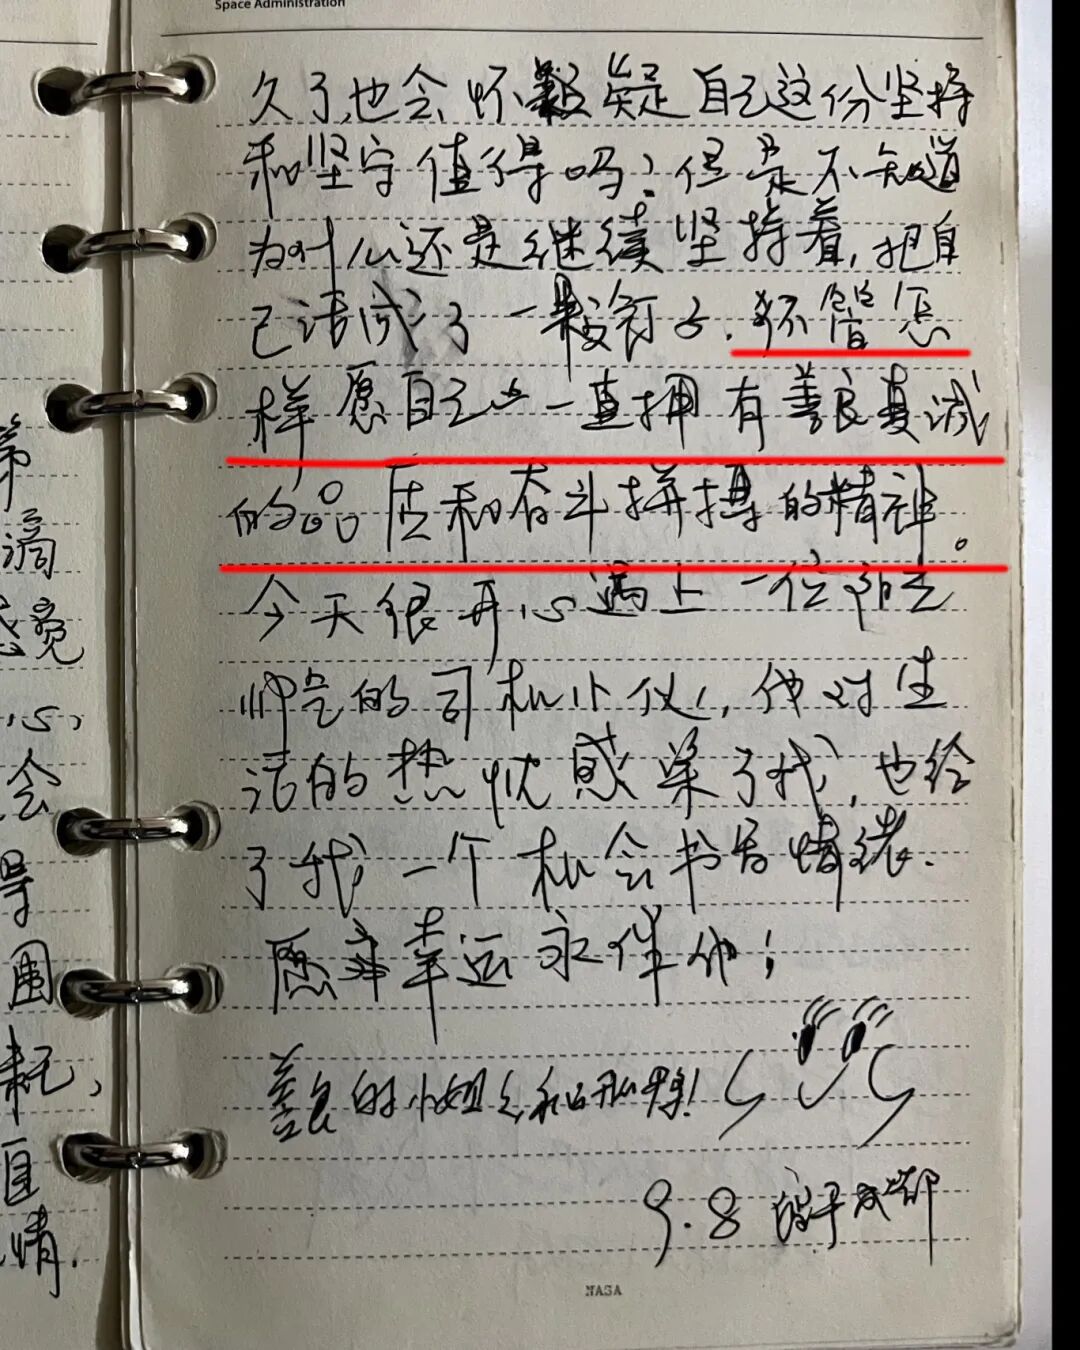 Space Administration
久了,也会怀疑自己这份坚持
和坚守值得吗?但是不知道
为什么还是继续坚持着,把自
己活成了一颗钉子.不管怎
样愿自己一直拥有善良真诚
的品质和奋斗拼搏的精神。
今天很开心遇上一位阳光
帅气的司机小伙,他对生
活的热忱感染了我,也给
了我一个机会书写情绪.
愿幸运永伴他!
善良的小姐
9.8 于成都
NASA
滴
感觉
心,
会
导
围
耗,
直
情.